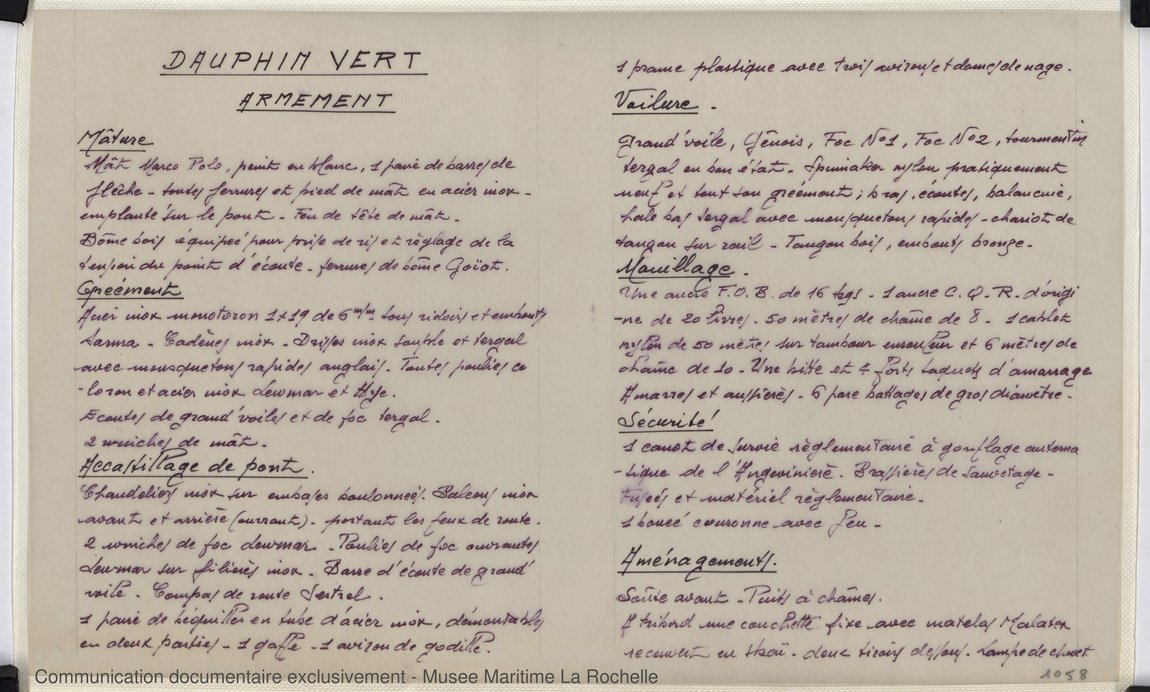 DAUPHIN VERT
ARMEMENT
Mâture
Mât Marco Polo, peint en blanc, 1 paire de barres de
flèche - toutes ferrures et pied de mât en acier inox -
emplanté sur le pont - Feu de tête de mât -
Bôme bois équipée pour prise de ris et règlage de la
tension du point d'écoute - ferrures de bôme Goïot.
Gréement
Acier inox monotoron 1x19 de 6 m/m tous ridoirs et embouts
Sarma - Cadènes inox - Drisses inox souple et tergal
avec mousquetons rapides anglais - Toutes poulies ce
-loron et acier inox Lewmar et
Ecoutes de grand'voiles et de foc tergal.
2 winches de mât.
Accastillage de pont.
Chandeliers inox sur embases boulonnées. Balcons inox
avant et arrière (ouvrant) - portant les feux de route.
2 winches de foc Lewmar - Poulies de foc ouvrantes
Lewmar sur filières inox - Barre d'écoute de grand'
voile - Compas de route Sestrel.
1 paire de béquilles en tube d'acier inox, démontables
en deux parties - 1 gaffe - 1 aviron de godille.
1 prame plastique avec trois avirons et dames de nage.
Voilure -
Grand'voile, Gênois, Foc N°1, Foc N°2, tourmentin
tergal en bon état - Spinnaker nylon pratiquement
neuf et tout son gréement ; bras, écoutes, balancine,
hale bas tergal avec mousquetons rapides - chariot de
tangon sur rail - Tangon bois, embouts bronze.
Mouillage.
Une ancre F.O.B. de 16 kgs - 1 ancre C.Q.R. d'origi
-ne de 20 livres - 50 mètres de chaîne de 8 - 1 cablot
nylon de 50 mètres sur tambour enrouleur et 6 mètres de
chaîne de 10 - Une bitte et 4 forts taquets d'amarrage
Amarres et aussières - 6 pare battages de gros diamètre.
Sécurité
1 canot de survie règlementaire à gonflage automa
-tique de l'Angevinière. Brassières de Sauvetage -
Fusées et matériel règlementaire.
1 bouée couronne avec feu -
Aménagements.
Soûte avant - Puits à chaînes.
A tribord une couchette fixe avec matelas Malatex
recouvert en skaï - deux tiroirs dessous - Lampe de chevet
1058
Communication documentaire exclusivement - Musee Maritime La Rochelle